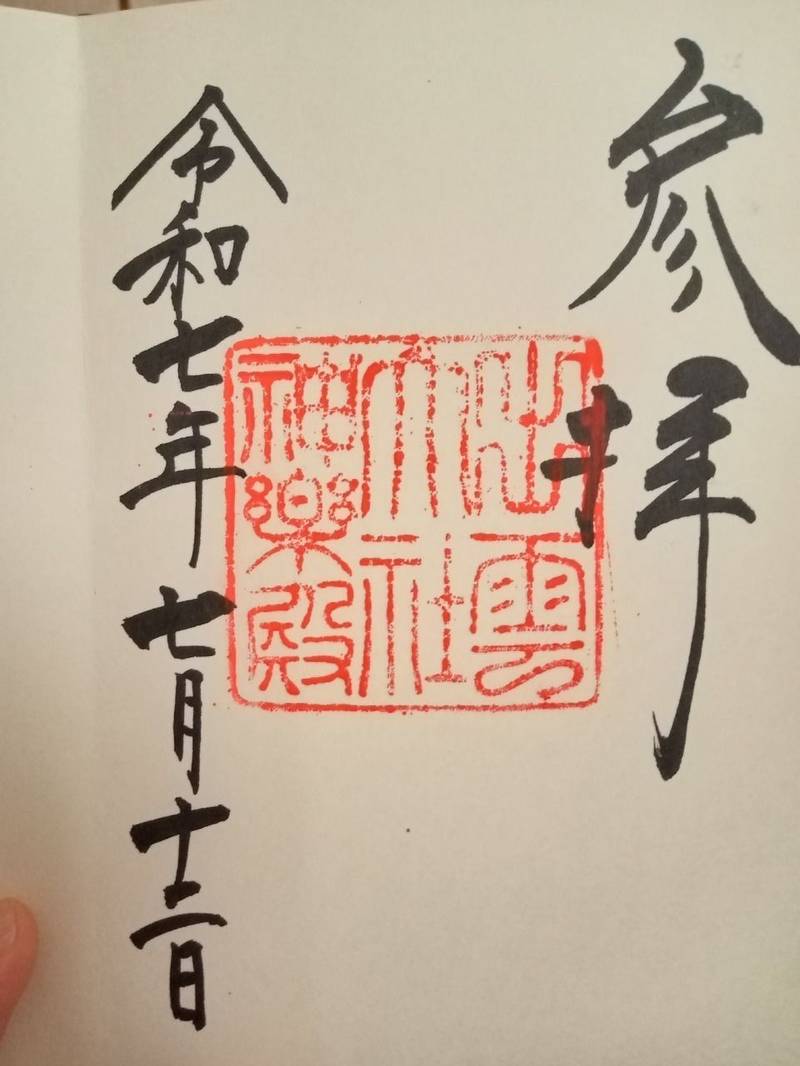 参拝
出雲
大社
神楽殿
令和七年七月十二日